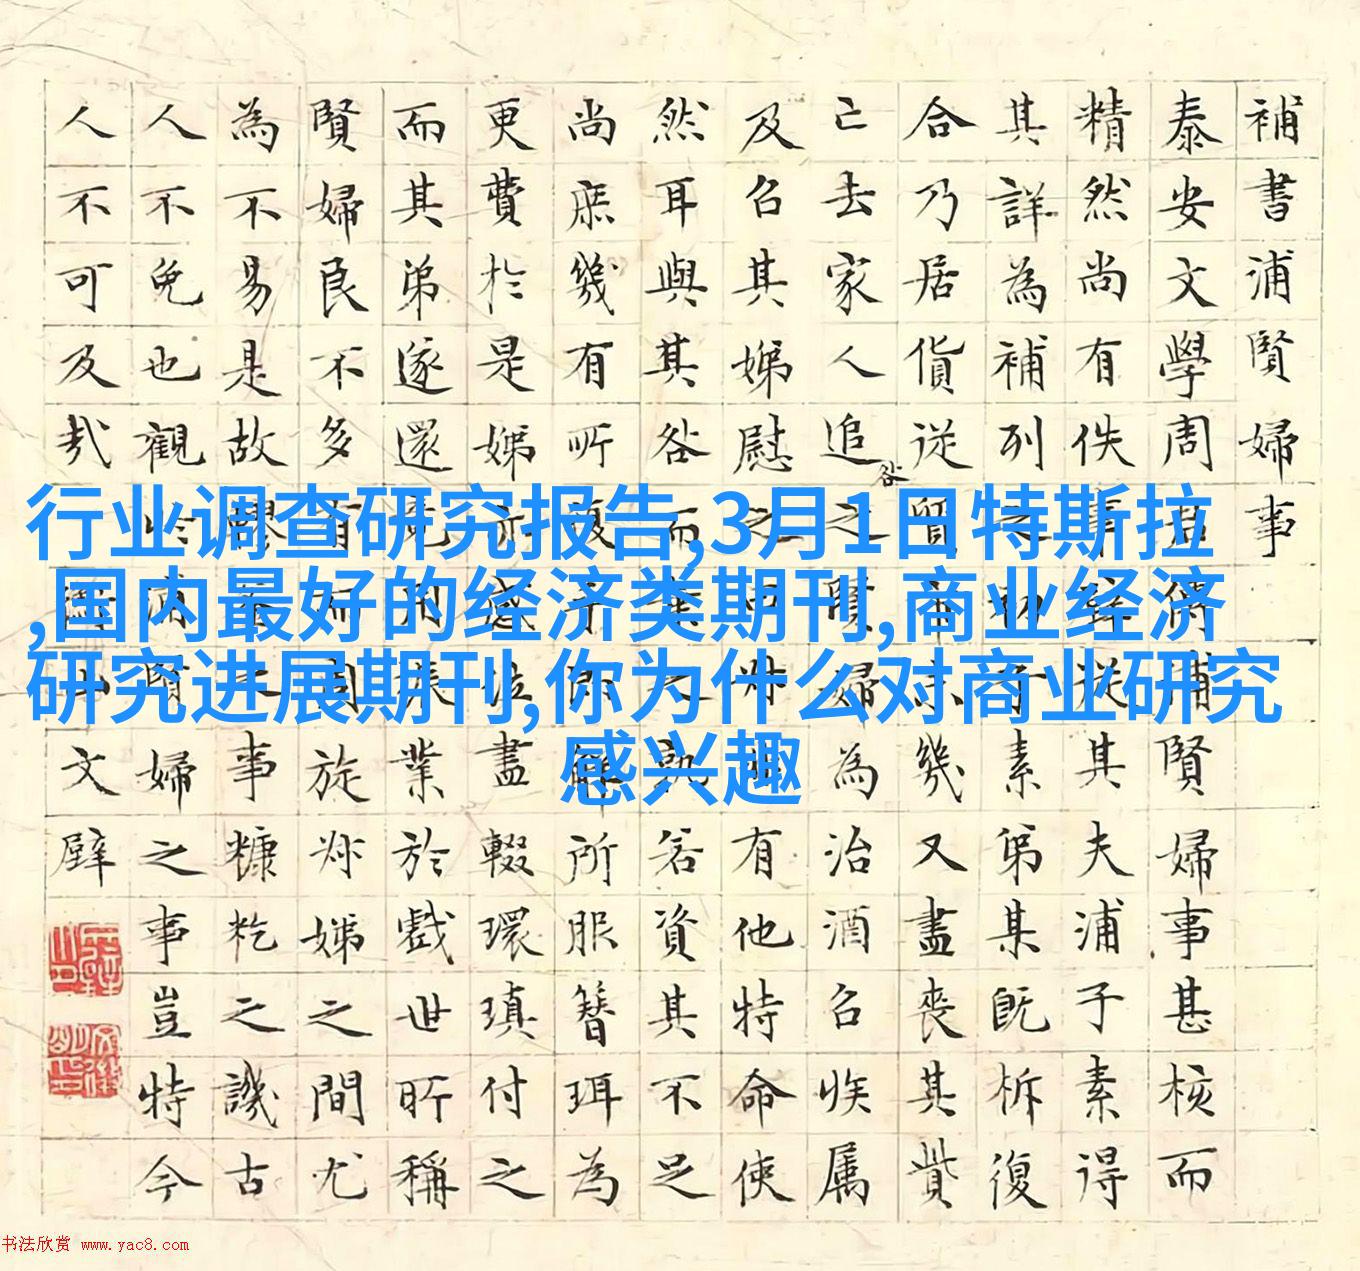 補書浦賢婦事
泰安文學周君傳浦賢婦事甚核而
精然尚有佚事從其夫浦子素得
其詳為補列之初子素弟某既析復
合乃居貨從賈京幾又盡喪其貲
已去家人追之賢婦為治酒召族属
及召其娣慰之有他特命使
然耳與其咎而若資其不足
尚庶幾有所所服簪珥為
更費於是娣盡輟環瑱付之
而其弟遂還業於戲世所稱
賢婦良不多有旋娣之間尤
為不易是故事糠籺之譏古
人不免也觀於浦賢婦之事豈特今
人不可及哉文壁
行业调查研究报告,3月1日特斯拉
,国内最好的经济类期刊,商业经济
研究进展期刊,你为什么对商业研究
感兴趣
书法欣赏 www.yac8.com